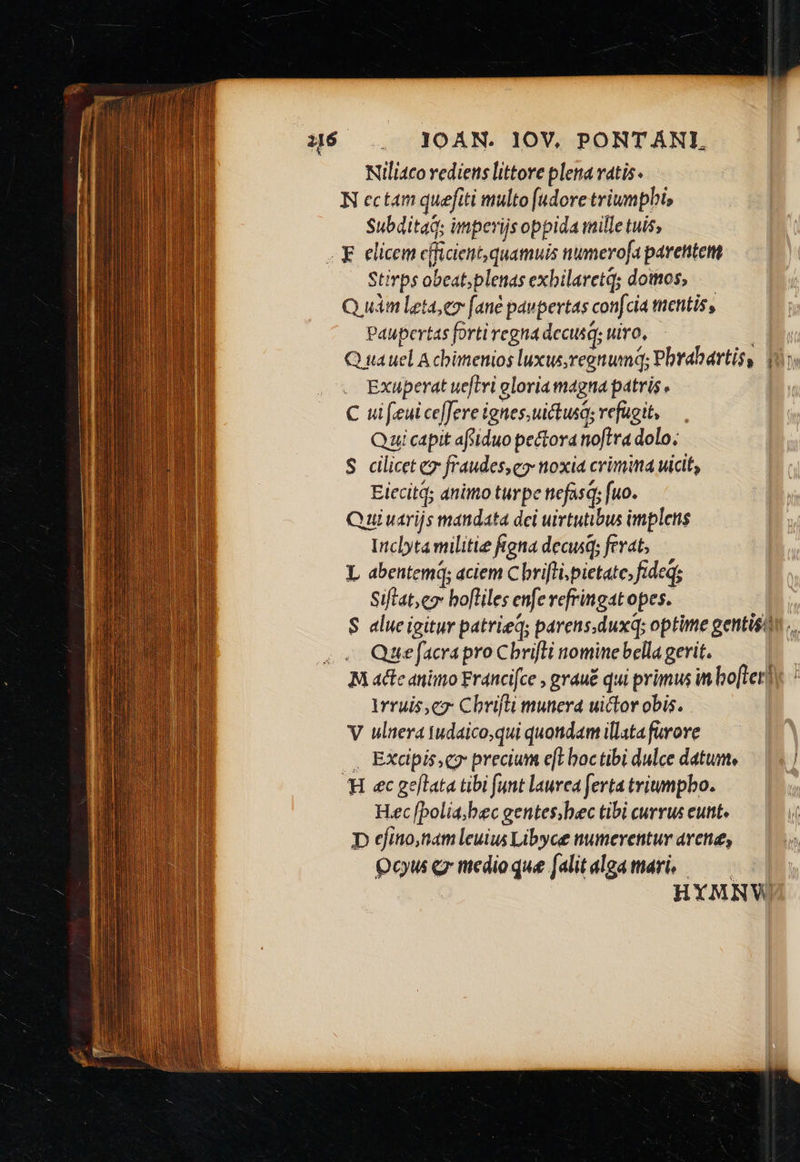 216 IOAN. IOV. PONTANI.
Niliaco rediens littore plena ratis.
N ec tam quesiti multo sudore triumphi,
Subditaq; imperijs oppida mille tuis,
F elicem efficient, quamuis numerosa parentem
Stirps obeat, plenas exhilaretq; domos,
Q uàm læta, & sanè paupertas conscia mentis,
Paupertas forti regna decusq; uiro.
Q ua uel Achimenios luxus, regnumq; Phrahartis,
Exuperat uestri gloria magna patris.
C ui sæui cessere ignes, uictusq; refugit,
Qui capit assiduo pectora nostra dolo:
S cilicet & fraudes, & noxia crimina uicit,
Eiecitq; animo turpe nefasq; suo.
Qui uarijs mandata dei uirtutibus implens
Inclyta militiæ signa decusq; ferat,
L abentemq; aciem Christi, pietate, fideq;
Sistat, & hostiles ense refringat opes.
S alue igitur patrieq; parens, duxq; optime gentis
Quæ sacra pro Christi nomine bella gerit.
M acte animo Francisce, grauē qui primus in hostem
Irruis, & Christi munera uictor obis.
V ulnera iudaico, qui quondam illata furore
Excipis, & precium est hoc tibi dulce datum.
H æc gestata tibi sunt laurea serta triumpho.
Hæc spolia, hæc gentes, hæc tibi currus eunt.
D esino, nam leuius Libycæ numerentur arenæ,
Ocyus & medio quæ salit alga mari.
HYMNV